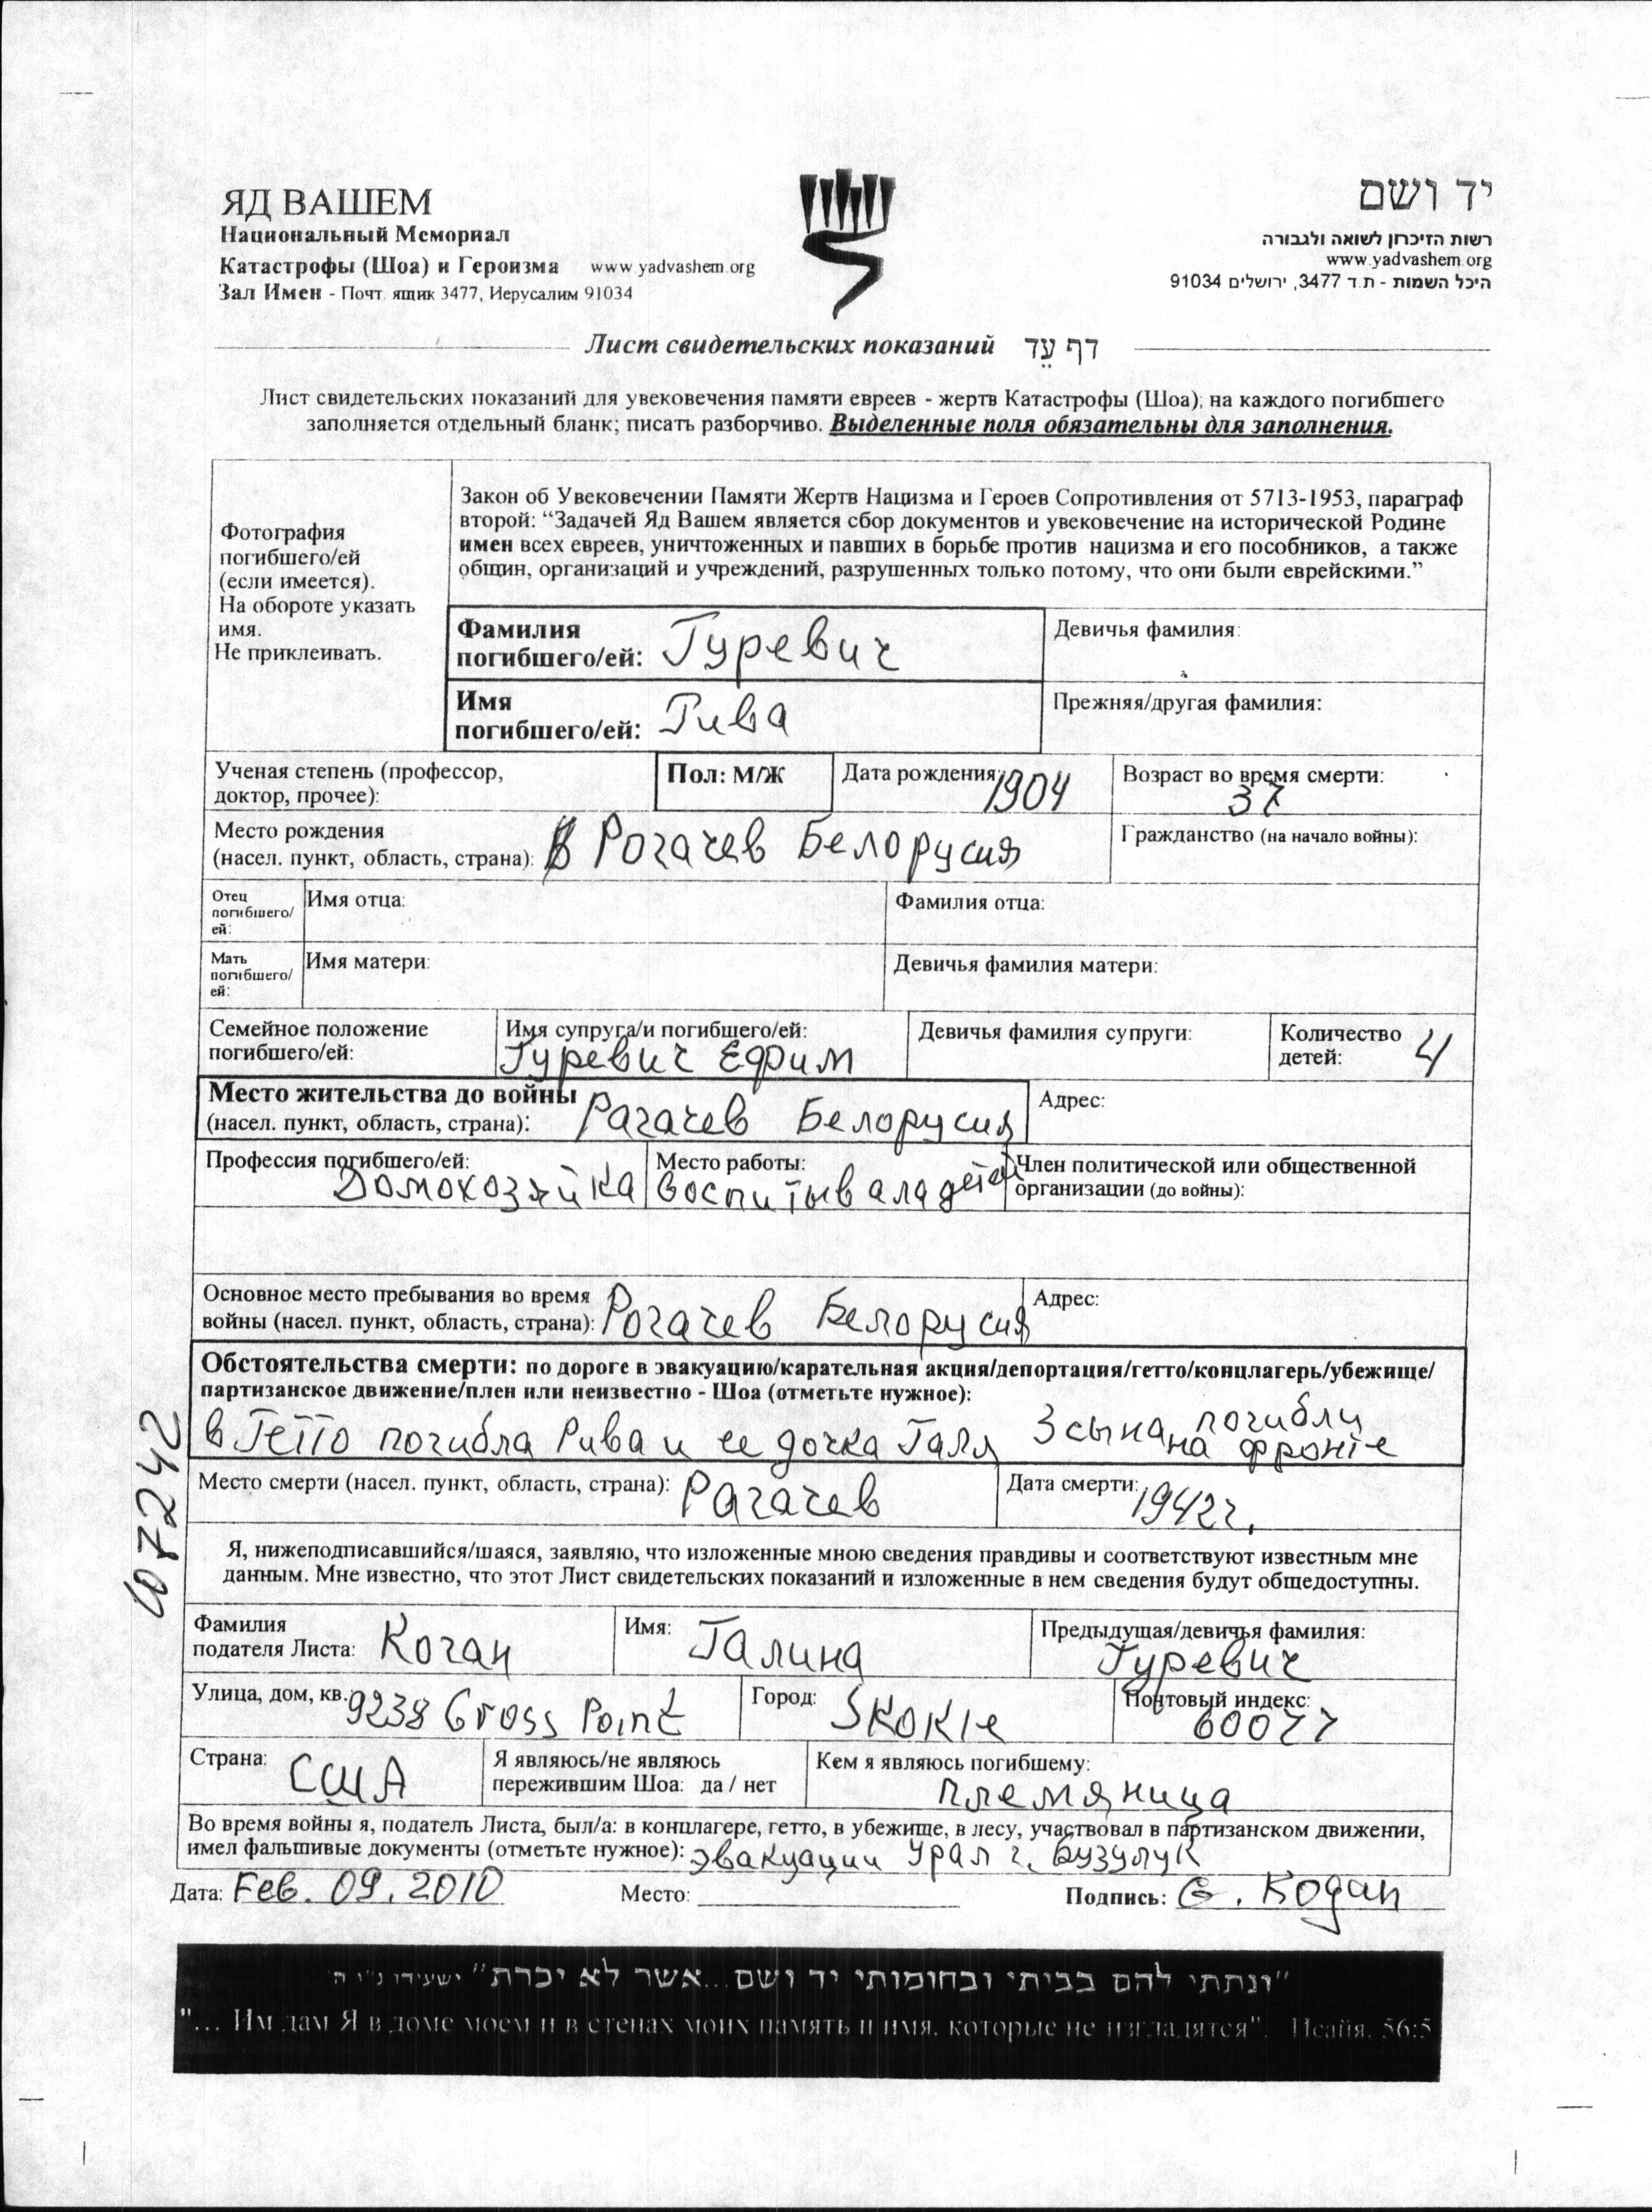 ЯД ВАШЕМ
Национальный Мемориал
Катастрофы (Шоа) и Героизма www.yadvashem.org
Зал Имен - Почт. ящик 3477, Иерусалим 91034
יד ושם
רשות הזיכרון לשואה ולגבורה
www.yadvashem.org
היכל השמות - ת.ד 3477, ירושלים 91034
Лист свидетельских показаний דף עֵד
Лист свидетельских показаний для увековечения памяти евреев - жертв Катастрофы (Шоа); на каждого погибшего
заполняется отдельный бланк; писать разборчиво. Выделенные поля обязательны для заполнения.
Фотография
погибшего/ей
(если имеется).
На обороте указать
имя.
Не приклеивать.
Закон об Увековечении Памяти Жертв Нацизма и Героев Сопротивления от 5713-1953, параграф
второй: “Задачей Яд Вашем является сбор документов и увековечение на исторической Родине
имен всех евреев, уничтоженных и павших в борьбе против нацизма и его пособников, а также
общин, организаций и учреждений, разрушенных только потому, что они были еврейскими.”
Фамилия
погибшего/ей: Гуревич
Девичья фамилия:
Имя
погибшего/ей: Рива
Прежняя/другая фамилия:
Ученая степень (профессор,
доктор, прочее):
Пол: М/Ж
Дата рождения: 1904
Возраст во время смерти:
37
Место рождения
(насел. пункт, область, страна): В Рогачев Белорусия
Гражданство (на начало войны):
Отец
погибшего/
ей:
Имя отца:
Фамилия отца:
Мать
погибшего/
ей:
Имя матери:
Девичья фамилия матери:
Семейное положение
погибшего/ей:
Имя супруга/и погибшего/ей:
Гуревич Ефим
Девичья фамилия супруги:
Количество
детей: 4
Место жительства до войны
(насел. пункт, область, страна): Рагачев Белорусия
Адрес:
Профессия погибшего/ей:
Домохозяйка
Место работы:
воспитывала детей
Член политической или общественной
организации (до войны):
Основное место пребывания во время
войны (насел. пункт, область, страна): Рогачев Белорусия
Адрес:
Обстоятельства смерти: по дороге в эвакуацию/карательная акция/депортация/гетто/концлагерь/убежище/
партизанское движение/плен или неизвестно - Шоа (отметьте нужное):
в Гетто погибла Рива и ее дочка Галя 3 сына погибли
на фронте
Место смерти (насел. пункт, область, страна): Рагачев
Дата смерти: 1942г.
407242
Я, нижеподписавшийся/шаяся, заявляю, что изложенные мною сведения правдивы и соответствуют известным мне
данным. Мне известно, что этот Лист свидетельских показаний и изложенные в нем сведения будут общедоступны.
Фамилия
подателя Листа: Коган
Имя: Галина
Предыдущая/девичья фамилия:
Гуревич
Улица, дом, кв.: 9238 Gross Point
Город: Skokie
Почтовый индекс:
60077
Страна: США
Я являюсь/не являюсь
пережившим Шоа: да / нет
Кем я являюсь погибшему:
племяница
Во время войны я, податель Листа, был/а: в концлагере, гетто, в убежище, в лесу, участвовал в партизанском движении,
имел фальшивые документы (отметьте нужное): эвакуации Урал г. Бузулук
Дата: Feb. 09. 2010 Место: Подпись: G. Kogan
"ונתתי להם בביתי ובחומותי יד ושם...אשר לא יכרת" ישעיהו נ"ו ה'
"... Им дам Я в доме моем и в стенах моих память и имя, которые не изгладятся". Исайя, 56:5